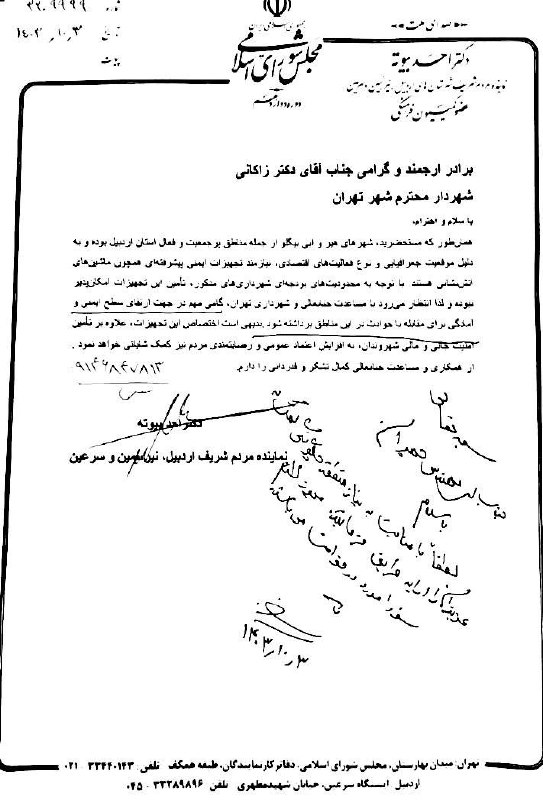 جمهوری اسلامی ایران
مجلس شورای اسلامی
دوره دوازدهم
شماره ۳۲۰۹۹۹۹
تاریخ ۱۴۰۳,۱۰,۳
پیوست
دکتر احد بیوته
نماینده مردم شریف شهرستان های اردبیل، نیر، نمین و سرعین
عضو کمیسیون فرهنگی
برادر ارجمند و گرامی جناب آقای دکتر زاکانی
شهردار محترم شهر تهران
با سلام و احترام،
همان‌طور که مستحضرید، شهرهای هیر و ابی بیگلو از جمله مناطق پرجمعیت و فعال استان اردبیل بوده و به
دلیل موقعیت جغرافیایی و نوع فعالیت‌های اقتصادی، نیازمند تجهیزات ایمنی پیشرفته‌ای همچون ماشین‌های
آتش‌نشانی هستند. با توجه به محدودیت‌های بودجه‌ای شهرداری‌های مذکور، تأمین این تجهیزات امکان‌پذیر
نبوده و لذا انتظار می‌رود با مساعدت جنابعالی و شهرداری تهران، گامی مهم در جهت ارتقای سطح ایمنی و
آمادگی برای مقابله با حوادث در این مناطق برداشته شود. بدیهی است اختصاص این تجهیزات، علاوه بر تأمین
امنیت جانی و مالی شهروندان، به افزایش اعتماد عمومی و رضایتمندی مردم نیز کمک شایانی خواهد نمود.
از همکاری و مساعدت جنابعالی کمال تشکر و قدردانی را دارم.
۹۱۴۶۸۴۷۸۱۳
دکتر احد بیوته
نماینده مردم شریف اردبیل، نیر، نمین و سرعین
با سلام
لطفاً با عنایت به نیاز منطقه
۱۴۰۳,۱۰,۳
تهران: میدان بهارستان، مجلس شورای اسلامی، دفاتر کار نمایندگان، طبقه همکف تلفن: ۳۳۴۴۰۱۴۳ - ۰۲۱
اردبیل ایستگاه سرعین، خیابان شهیدمطهری تلفن: ۳۳۲۸۹۸۹۶ - ۰۴۵